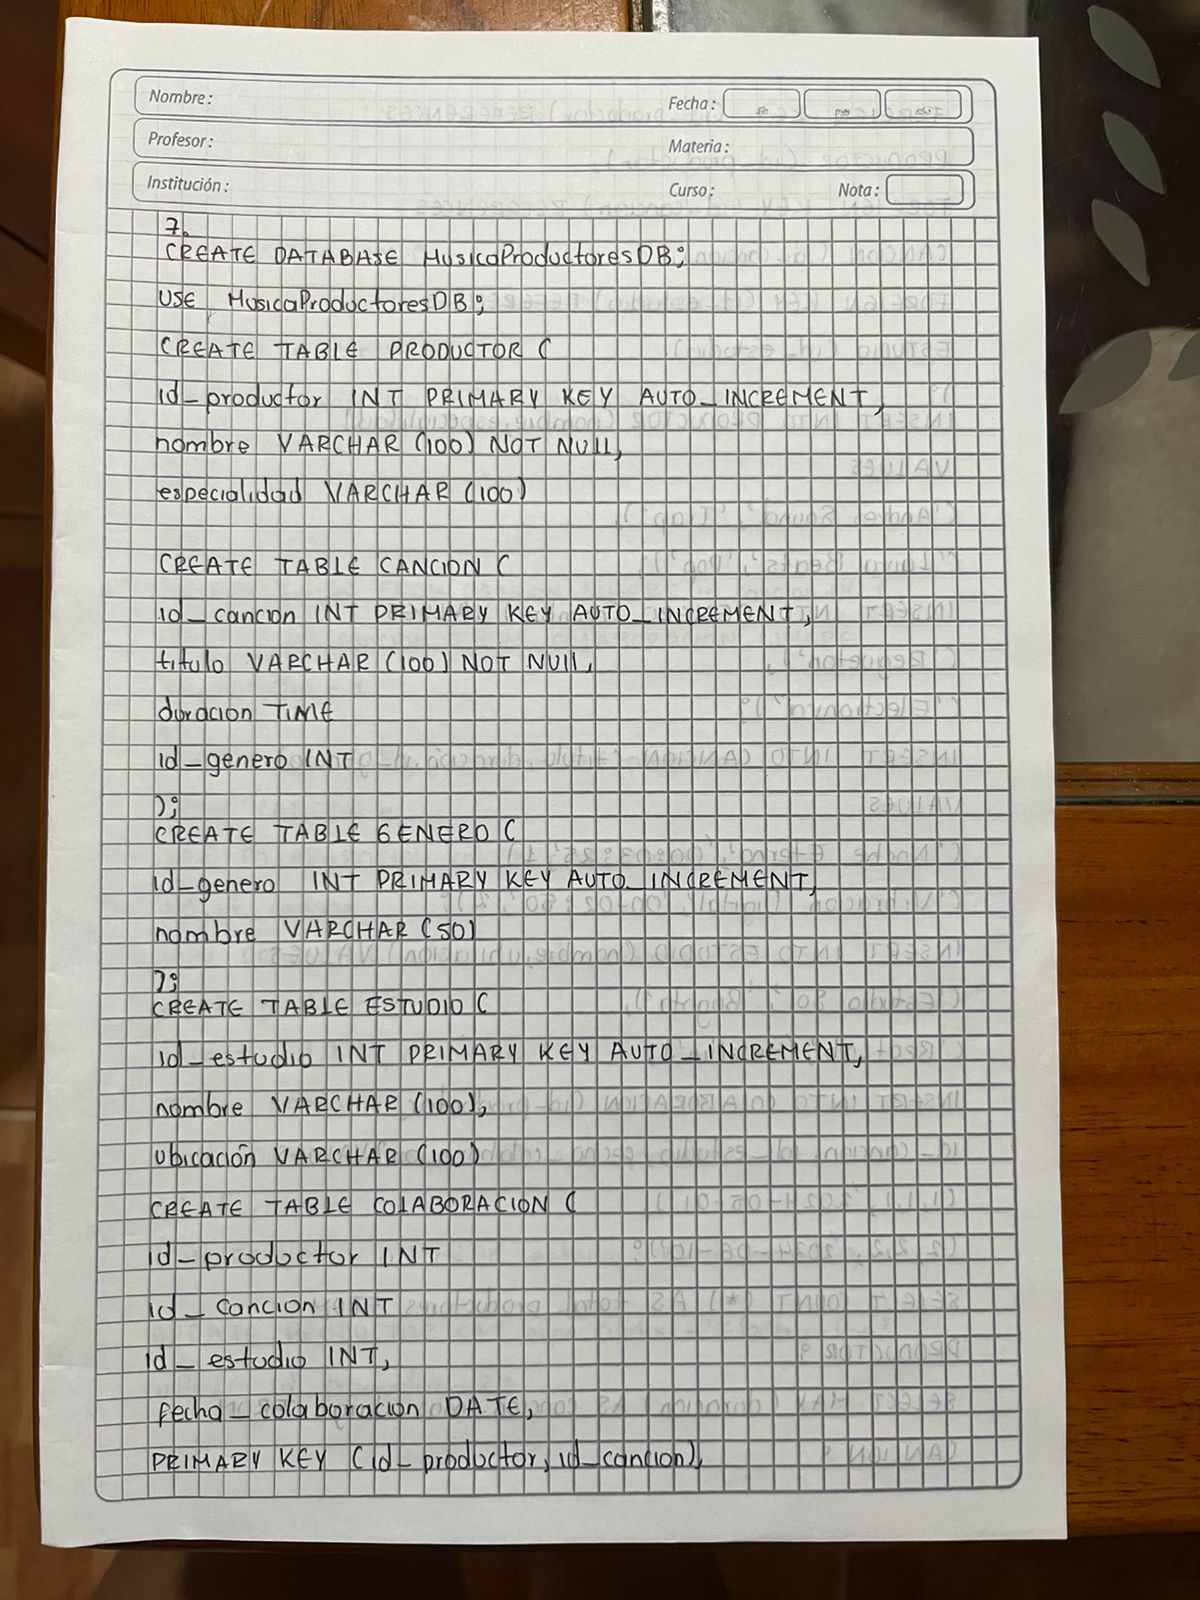 Nombre:
Fecha: día mes año
Profesor:
Materia:
Institución:
Curso:
Nota:
7.
CREATE DATABASE MusicaProductoresDB;
USE MusicaProductoresDB;
CREATE TABLE PRODUCTOR (
id_productor INT PRIMARY KEY AUTO_INCREMENT,
nombre VARCHAR (100) NOT NUll,
especialidad VARCHAR (100)
CREATE TABLE CANCION (
id_cancion INT PRIMARY KEY AUTO_INCREMENT,
titulo VARCHAR (100) NOT NUll,
duracion TIME
id_genero INT
);
CREATE TABLE GENERO (
id_genero INT PRIMARY KEY AUTO_INCREMENT,
nombre VARCHAR (50)
);
CREATE TABLE ESTUDIO (
id_estudio INT PRIMARY KEY AUTO_INCREMENT,
nombre VARCHAR (100),
ubicación VARCHAR (100)
CREATE TABLE COlABORACION (
id_productor INT
id_cancion INT
id_estudio INT,
fecha_colaboracion DATE,
PRIMARY KEY (id_productor, id_cancion),